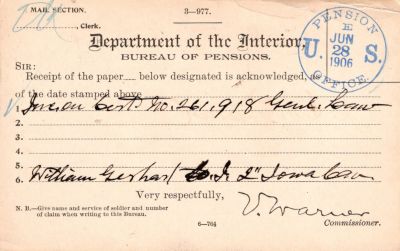 MAIL SECTION.
3—977.
, Clerk.
Department of the Interior,
BUREAU OF PENSIONS.
PENSION OFFICE
U. S.
E
JUN
28
1906
SIR:
Receipt of the paper below designated is acknowledged, as
of the date stamped above
1. Inv. on Cert. No. 261,918
2.
3.
4.
5.
6. William Gerhart Co. I. 2" Iowa Cav
Very respectfully,
V. Warner
Commissioner.
N. B.—Give name and service of soldier and number
of claim when writing to this Bureau.
6—764